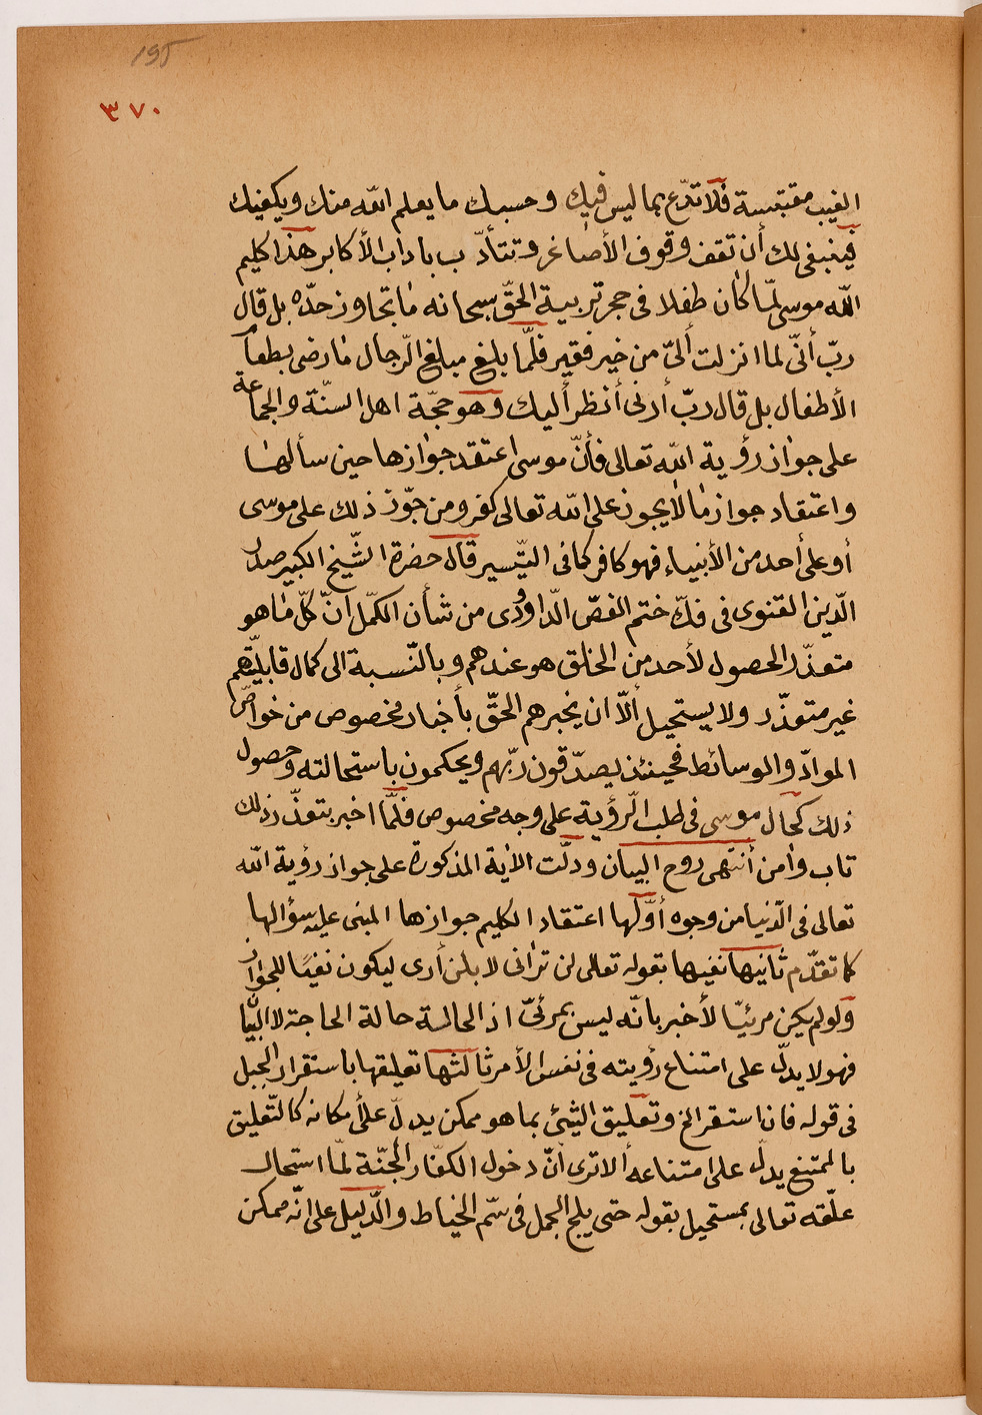 195
٣٧٠
الغيب مقتبسة فلا تدّع بما ليس فيك وحسبك ما يعلم الله منك ويكفيك
فينبغى لك أن تقف وقوف الأصاغر وتتأدّب بآداب الأكابر هذا كليم
الله موسى لمّا كان طفلا فى حجر تربية الحقّ سبحانه ما تجاوز حدّه بل قال
ربّ أنّى لما انزلت ألىّ من خير فقير فلمّا بلغ مبلغ الرّجال ما رضى بطعام
الأطفال بل قال ربّ أرنى أنظر أليك وهو حجّة اهل السنّة والجماعة
على جواز رؤية الله تعالى فأنّ موسى اعتقد جوازها حين سألها
واعتقاد جواز ما لا يجوز على الله تعالى كفر ومن جوّز ذلك على موسى
أو على أحد من الأنبياء فهو كافر كما فى التّيسير قال حضرة الشّيخ الكبير صدر
الدّين القنوى فى فكّ ختم الفصّ الدّاوُدى من شأن الكمّل انّ كلّ ما هو
متعذّر الحصول لأحد من الخلق هو عندهم وبالنّسبة الى كمال قابليّتهم
غير متعذّر ولا يستحيل ألّا ان يخبرهم الحقّ بأخبار مخصوص من خواصّ
الموادّ والوسائط فحينئذ يصدّقون ربّهم ويحكمون باستحالته وحصول
ذلك كحال موسى فى طلب الرّؤية على وجه مخصوص فلمّا اخبر بتعذّر ذلك
تاب وامن أنتهى روح البيان ودلّت الاية المذكورة على جواز رؤية الله
تعالى فى الدّنيا من وجوه أوّلها اعتقاد الكليم جوازها المبنى عليه سؤالها
كما تقدّم ثانيها نفيها بقوله تعالى لن ترانى لا بلن أرى ليكون نفيًا للجواز
ولو لم يكن مرئيّا لأخبر بانّه ليس بمرئىّ اذ الحالة حالة الحاجة لا البيان
فهو لا يدلّ على امتناع رؤيته فى نفس الأمر ثالثها تعليقها باستقرار الجبل
فى قوله فان استقر الخ وتعليق الشّئ بما هو ممكن يدلّ على أمكانه كالتّعليق
بالممتنع يدلّ على امتناعه ألا ترى أنّ دخول الكفّار الجنّة لمّا استحال
علّقه تعالى بمستحيل بقوله حتى يلج الجمل فى سّم الخياط والدّليل على انّه ممكن